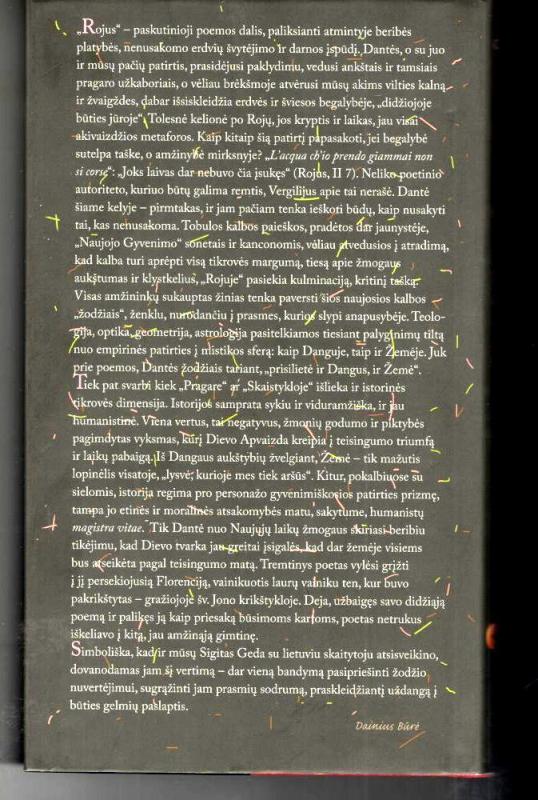 „Rojus“ – paskutinioji poemos dalis, paliksianti atmintyje beribės
platybės, nenusakomo erdvių švytėjimo ir darnos įspūdį. Dantės, o su juo
ir mūsų pačių patirtis, prasidėjusi paklydimu, vedusi ankštais ir tamsiais
pragaro užkaboriais, o vėliau brėkšmoje atvėrusi mūsų akims vilties kalną
ir žvaigždes, dabar išsiskleidžia erdvės ir šviesos begalybėje, „didžiojoje
būties jūroje“. Tolesnė kelionė po Rojų, jos kryptis ir laikas, jau visai
akivaizdžios metaforos. Kaip kitaip šią patirtį papasakoti, jei begalybė
sutelpa taške, o amžinybė mirksnyje? „L’acqua ch’io prendo giammai non
si corse“: „Joks laivas dar nebuvo čia įsukęs“ (Rojus, II 7). Neliko poetinio
autoriteto, kuriuo būtų galima remtis, Vergilijus apie tai nerašė. Dantė
šiame kelyje – pirmtakas, ir jam pačiam tenka ieškoti būdų, kaip nusakyti
tai, kas nenusakoma. Tobulos kalbos paieškos, pradėtos dar jaunystėje,
„Naujojo Gyvenimo“ sonetais ir kanconomis, vėliau atvedusios į atradimą,
kad kalba turi aprėpti visą tikrovės margumą, tiesą apie žmogaus
aukštumas ir klystkelius, „Rojuje“ pasiekia kulminaciją, kritinį tašką.
Visas amžininkų sukauptas žinias tenka paversti šios naujosios kalbos
„žodžiais“, ženklu, nurodančiu į prasmes, kurios slypi anapusybėje. Teolo-
gija, optika, geometrija, astrologija pasitelkiamos tiesiant palyginimų tiltą
nuo empirinės patirties į mistikos sferą: kaip Danguje, taip ir Žemėje. Juk
prie poemos, Dantės žodžiais tariant, „prisilietė ir Dangus, ir Žemė“.
Tiek pat svarbi kiek „Pragare“ ar „Skaistykloje“ išlieka ir istorinės
tikrovės dimensija. Istorijos samprata sykiu ir viduramžiška, ir jau
humanistinė. Viena vertus, tai negatyvus, žmonių godumo ir piktybės
pagimdytas vyksmas, kurį Dievo Apvaizda kreipia į teisingumo triumfą
ir laikų pabaigą. Iš Dangaus aukštybių žvelgiant, Žemė – tik mažutis
lopinėlis visatoje, „lysvė, kurioje mes tiek aršūs“. Kitur, pokalbiuose su
sielomis, istorija regima pro personažo gyvenimiškosios patirties prizmę,
tampa jo etinės ir moralinės atsakomybės matu, sakytume, humanistų
magistra vitae. Tik Dantė nuo Naujųjų laikų žmogaus skiriasi beribiu
tikėjimu, kad Dievo tvarka jau greitai įsigalės, kad dar žemėje visiems
bus atseikėta pagal teisingumo matą. Tremtinys poetas vylėsi grįžti
į jį persekiojusią Florenciją, vainikuotis laurų vainiku ten, kur buvo
pakrikštytas – gražiojoje šv. Jono krikštykloje. Deja, užbaigęs savo didžiąją
poemą ir palikęs ją kaip priesaką būsimoms kartoms, poetas netrukus
iškeliavo į kitą, jau amžinąją gimtinę.
Simboliška, kad ir mūsų Sigitas Geda su lietuviu skaitytoju atsisveikino,
dovanodamas jam šį vertimą – dar vieną bandymą pasipriešinti žodžio
nuvertėjimui, sugrąžinti jam prasmių sodrumą, praskleidžiantį uždangą į
būties gelmių paslaptis.
Dainius Būrė